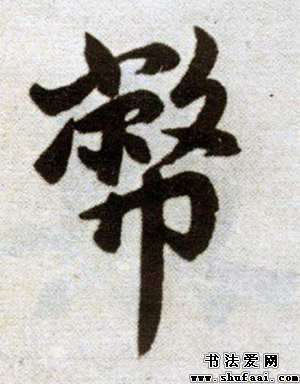 幣
书法爱网
www.shufaai.com